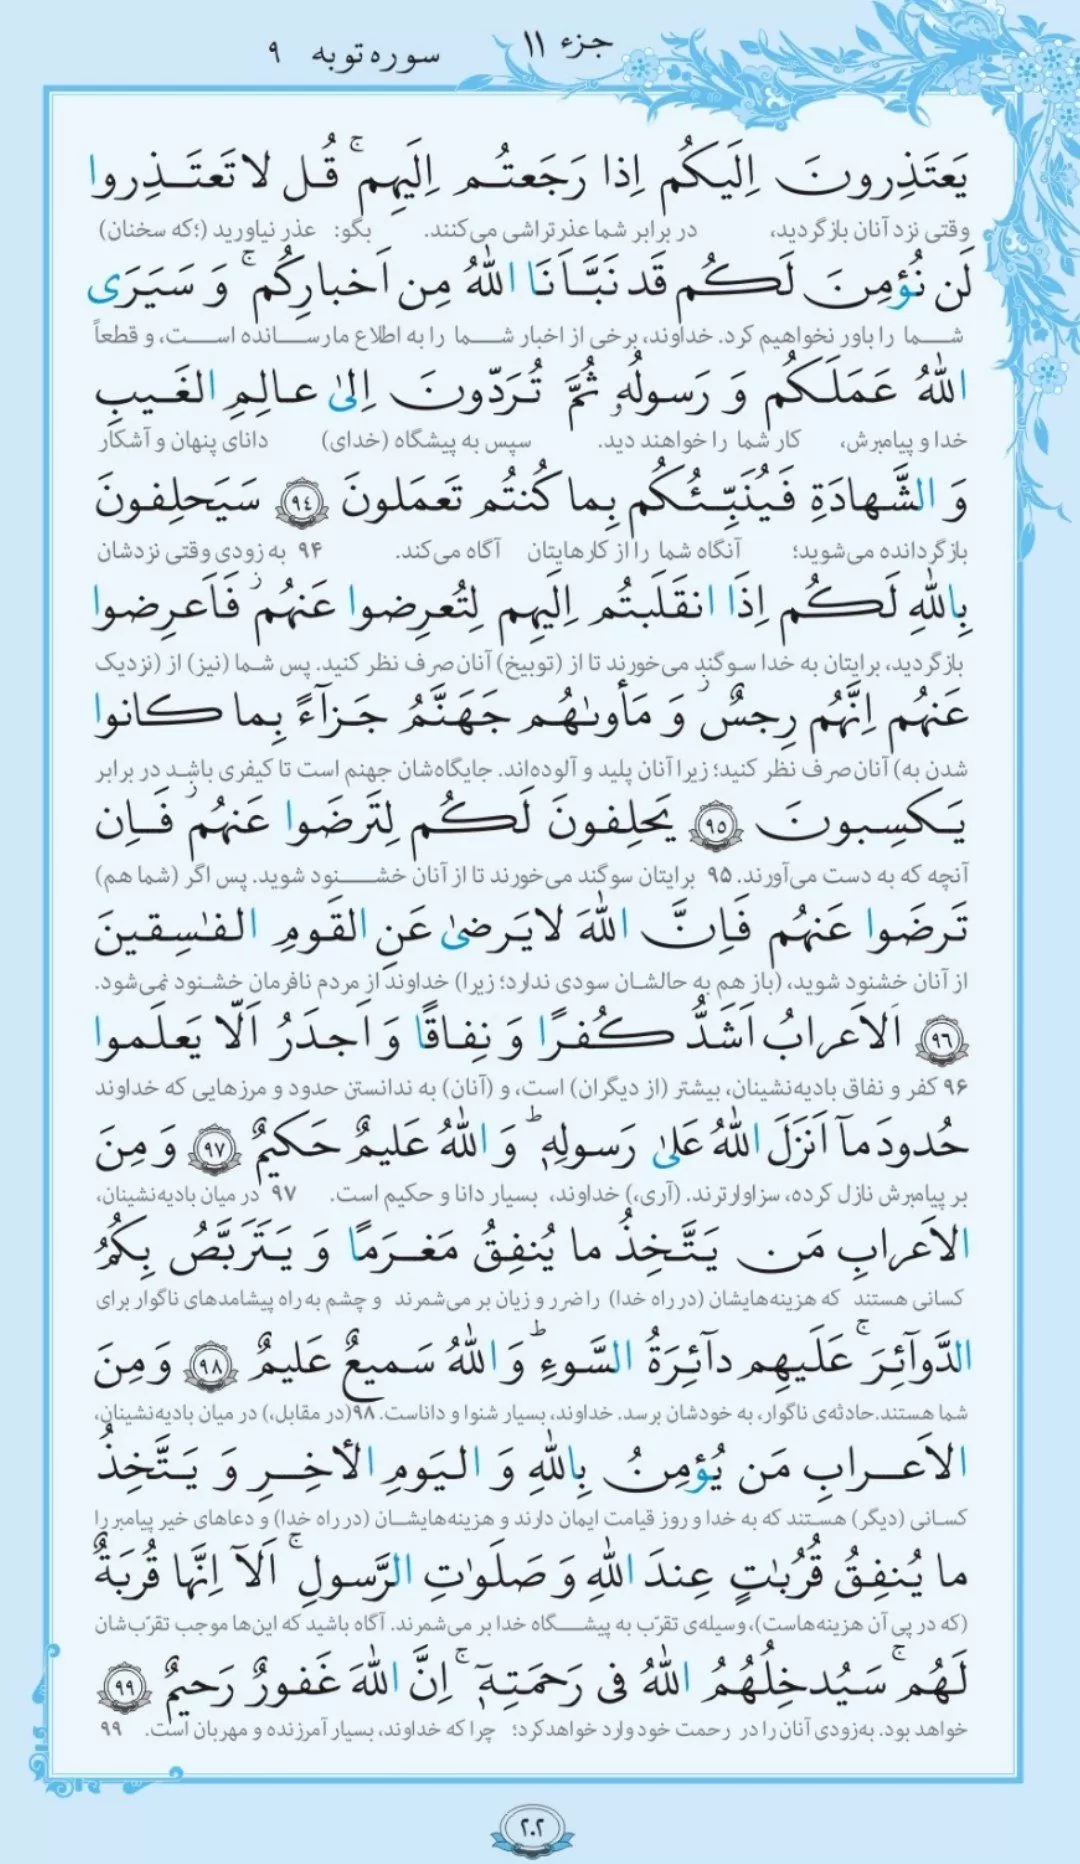 جزء ۱۱
سوره توبه ۹
يَعتَذِرونَ اِلَيكُم اِذا رَجَعتُم اِلَيهِم ۚ قُل لا تَعتَذِروا
وقتی نزد آنان بازگردید، در برابر شما عذرتراشی می‌کنند. بگو: عذر نیاورید (؛که سخنان)
لَن نُؤمِنَ لَكُم قَد نَبَّاَنَا اللهُ مِن اَخبارِكُم ۚ وَ سَيَرَى
شما را باور نخواهیم کرد. خداوند، برخی از اخبار شما را به اطلاع ما رسانده است، و قطعاً
اللهُ عَمَلَكُم وَ رَسولُهٗ ثُمَّ تُرَدّونَ اِلىٰ عالِمِ الغَيبِ
خدا و پیامبرش، کار شما را خواهند دید. سپس به پیشگاه (خدای) دانای پنهان و آشکار
وَ الشَّهادَةِ فَيُنَبِّئُكُم بِما كُنتُم تَعمَلونَ ﴿٩٤﴾ سَيَحلِفونَ
بازگردانده می‌شوید؛ آنگاه شما را از کارهایتان آگاه می‌کند. ۹۴ به زودی وقتی نزدشان
بِاللهِ لَكُم اِذَا انقَلَبتُم اِلَيهِم لِتُعرِضوا عَنهُم ۖ فَاَعرِضوا
بازگردید، برایتان به خدا سوگند می‌خورند تا از (توبیخ) آنان صرف نظر کنید. پس شما (نیز) از (نزدیک
عَنهُم اِنَّهُم رِجسٌ ۖ وَ مَأوىٰهُم جَهَنَّمُ جَزآءً بِما كانوا
شدن به) آنان صرف نظر کنید؛ زیرا آنان پلید و آلوده‌اند. جایگاه‌شان جهنم است تا کیفری باشد در برابر
يَكسِبونَ ﴿٩٥﴾ يَحلِفونَ لَكُم لِتَرضَوا عَنهُم ۖ فَاِن
آنچه که به دست می‌آورند. ۹۵ برایتان سوگند می‌خورند تا از آنان خشنود شوید. پس اگر (شما هم)
تَرضَوا عَنهُم فَاِنَّ اللهَ لا يَرضىٰ عَنِ القَومِ الفٰسِقينَ
از آنان خشنود شوید، (باز هم به حالشان سودی ندارد؛ زیرا) خداوند از مردم نافرمان خشنود نمی‌شود.
﴿٩٦﴾ اَلاَعرابُ اَشَدُّ كُفرًا وَ نِفاقًا وَ اَجدَرُ اَلّا يَعلَموا
۹۶ کفر و نفاق بادیه‌نشینان، بیشتر (از دیگران) است، و (آنان) به ندانستن حدود و مرزهایی که خداوند
حُدودَ مآ اَنزَلَ اللهُ عَلىٰ رَسولِهٖ ؕ وَ اللهُ عَليمٌ حَكيمٌ ﴿٩٧﴾ وَ مِنَ
بر پیامبرش نازل کرده، سزاوارترند. (آری،) خداوند، بسیار دانا و حکیم است. ۹۷ در میان بادیه‌نشینان،
الاَعرابِ مَن يَتَّخِذُ ما يُنفِقُ مَغرَمًا وَ يَتَرَبَّصُ بِكُمُ
کسانی هستند که هزینه‌هایشان (در راه خدا) را ضرر و زیان بر می‌شمرند و چشم به راه پیشامدهای ناگوار برای
الدَّوآئِرَ ۚ عَلَيهِم دآئِرَةُ السَّوءِ ؕ وَ اللهُ سَميعٌ عَليمٌ ﴿٩٨﴾ وَ مِنَ
شما هستند. حادثه‌ی ناگوار، به خودشان برسد. خداوند، بسیار شنوا و داناست. ۹۸(در مقابل،) در میان بادیه‌نشینان،
الاَعرابِ مَن يُؤمِنُ بِاللهِ وَ اليَومِ الأخِرِ وَ يَتَّخِذُ
کسانی (دیگر) هستند که به خدا و روز قیامت ایمان دارند و هزینه‌هایشان (در راه خدا) و دعاهای خیر پیامبر را
ما يُنفِقُ قُرُبٰتٍ عِندَ اللهِ وَ صَلَوٰتِ الرَّسولِ ۚ اَلآ اِنَّها قُربَةٌ
(که در پی آن هزینه‌هاست)، وسیله‌ی تقرّب به پیشگاه خدا بر می‌شمرند. آگاه باشید که این‌ها موجب تقرّب‌شان
لَهُم ۚ سَيُدخِلُهُمُ اللهُ فى رَحمَتِهٖٓ ۚ اِنَّ اللهَ غَفورٌ رَحيمٌ ﴿٩٩﴾
خواهد بود. به‌زودی آنان را در رحمت خود وارد خواهد کرد؛ چرا که خداوند، بسیار آمرزنده و مهربان است. ۹۹
۲۰۲